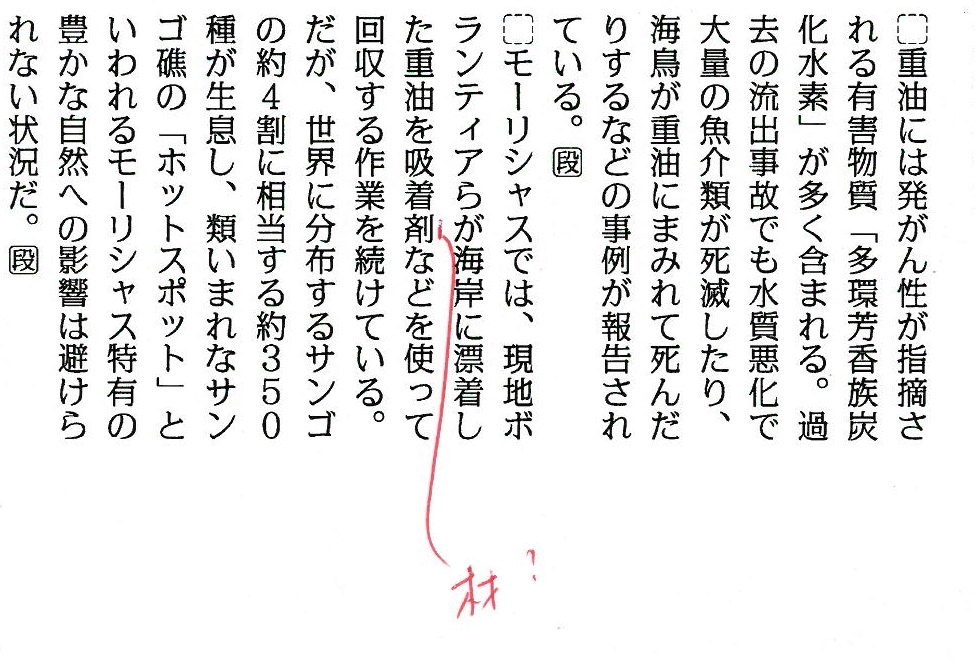 重油には発がん性が指摘さ
れる有害物質「多環芳香族炭
化水素」が多く含まれる。過
去の流出事故でも水質悪化で
大量の魚介類が死滅したり、
海鳥が重油にまみれて死んだ
りするなどの事例が報告され
ている。段
モーリシャスでは、現地ボ
ランティアらが海岸に漂着し
た重油を吸着剤などを使って
回収する作業を続けている。
だが、世界に分布するサンゴ
の約4割に相当する約350
種が生息し、類いまれなサン
ゴ礁の「ホットスポット」と
いわれるモーリシャス特有の
豊かな自然への影響は避けら
れない状況だ。段
材?